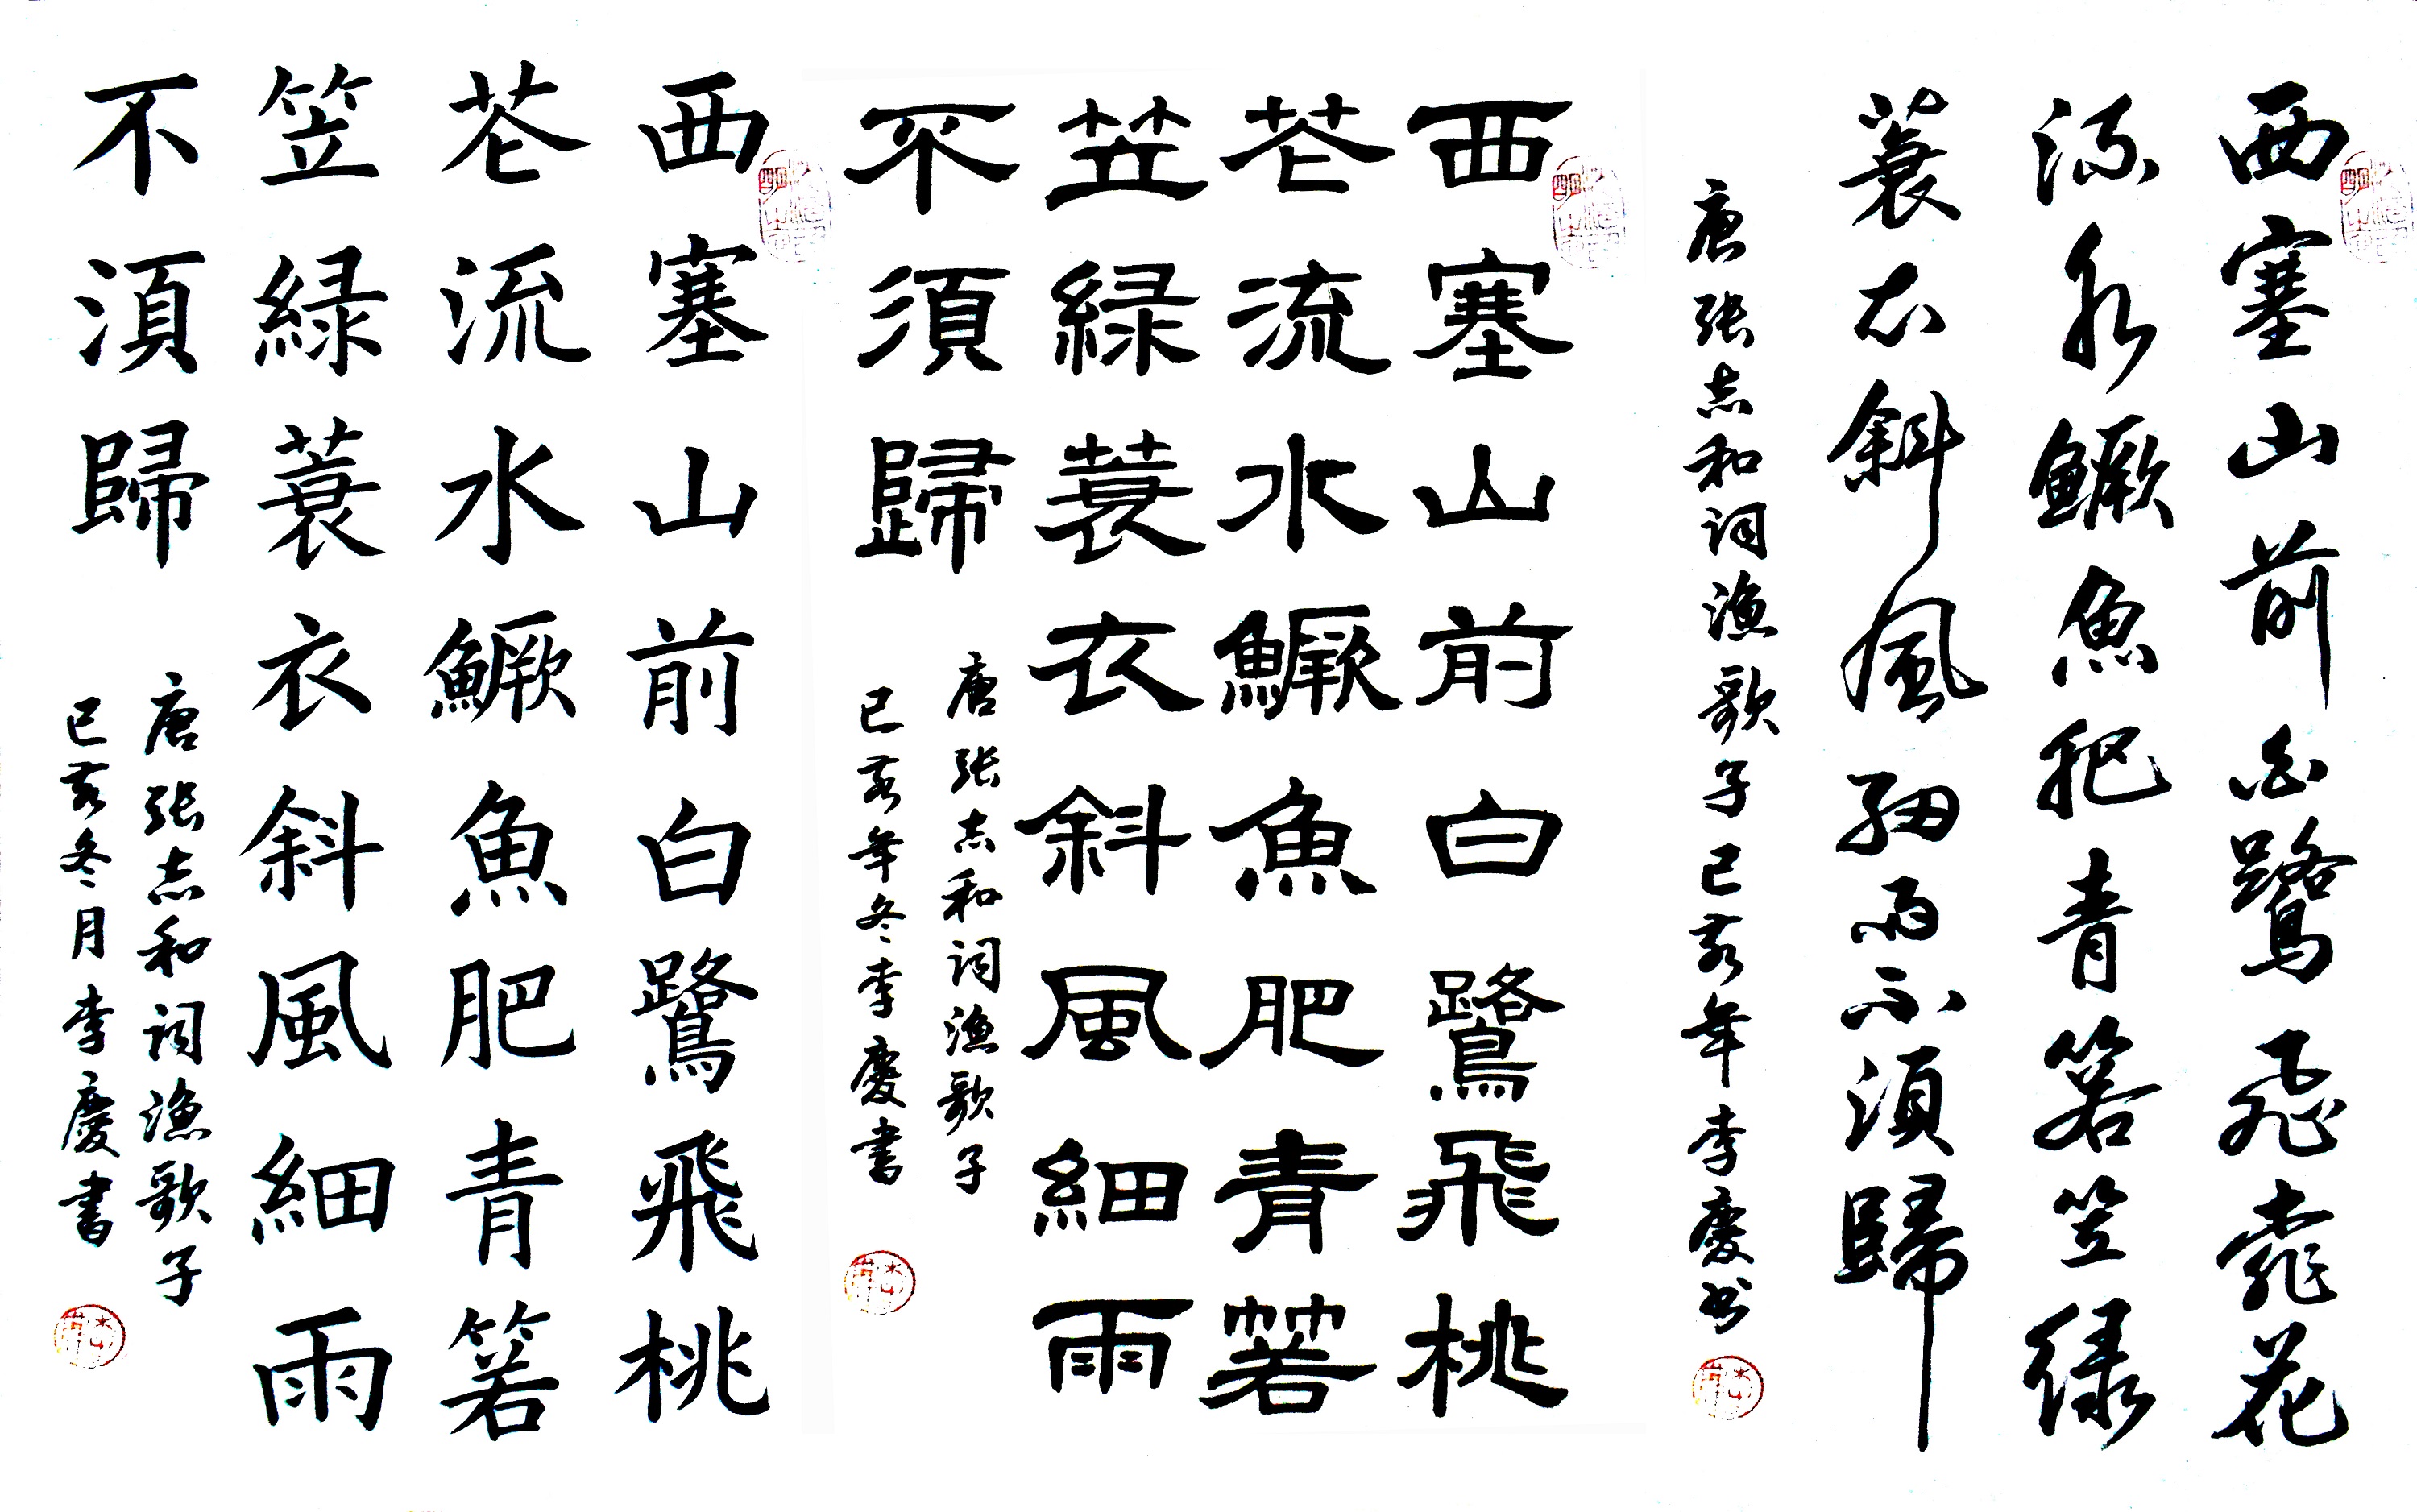 西塞山前白鷺飛桃花
流水鱖魚肥青箬笠緑
蓑衣斜風細雨不須歸
唐张志和詞漁歌子己亥年李慶书
西塞山前白鷺飛桃
花流水鱖魚肥青箬
笠緑蓑衣斜風細雨
不須歸
唐张志和詞漁歌子
己亥年冬李慶書
西塞山前白鷺飛桃
花流水鱖魚肥青箬
笠緑蓑衣斜風細雨
不須歸
唐张志和詞漁歌子
己亥冬月李慶書